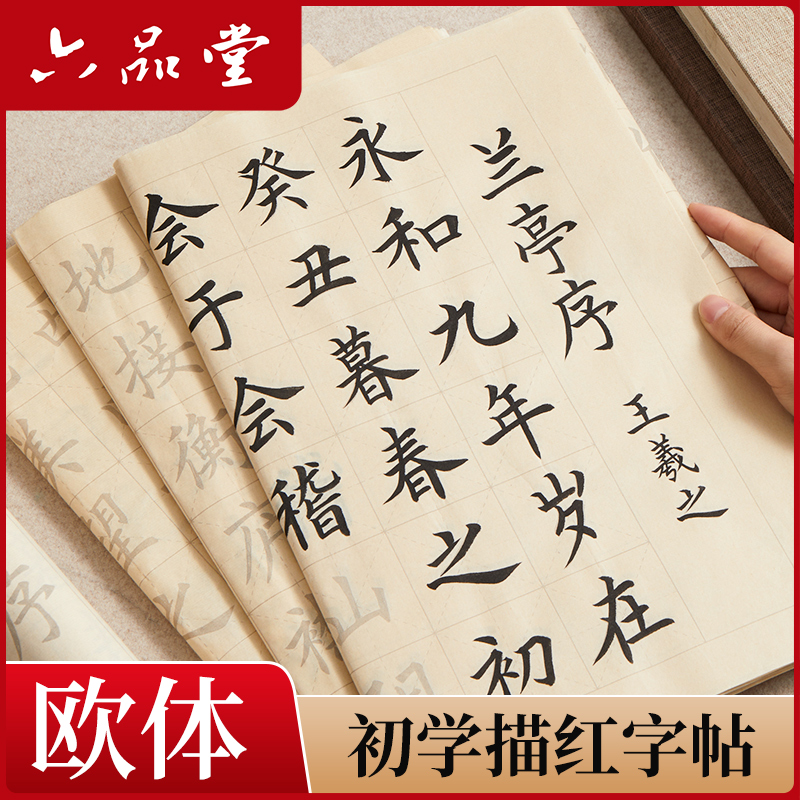 六品堂
兰亭序
王羲之
永和九年岁在
癸丑暮春之初
会于会稽
地接衡庐
序
欧体
初学描红字帖